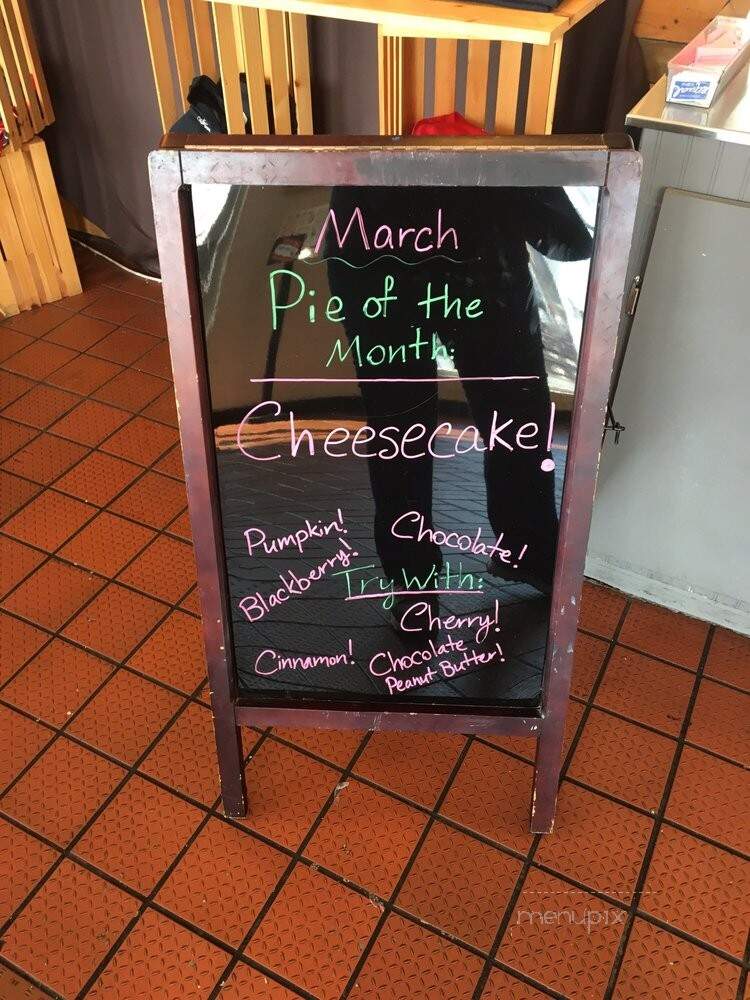 March
Pie of the
Month:
Cheesecake!
Pumpkin!
Chocolate!
Blackberry!
Try With:
Cherry!
Cinnamon!
Chocolate
Peanut Butter!
menupix